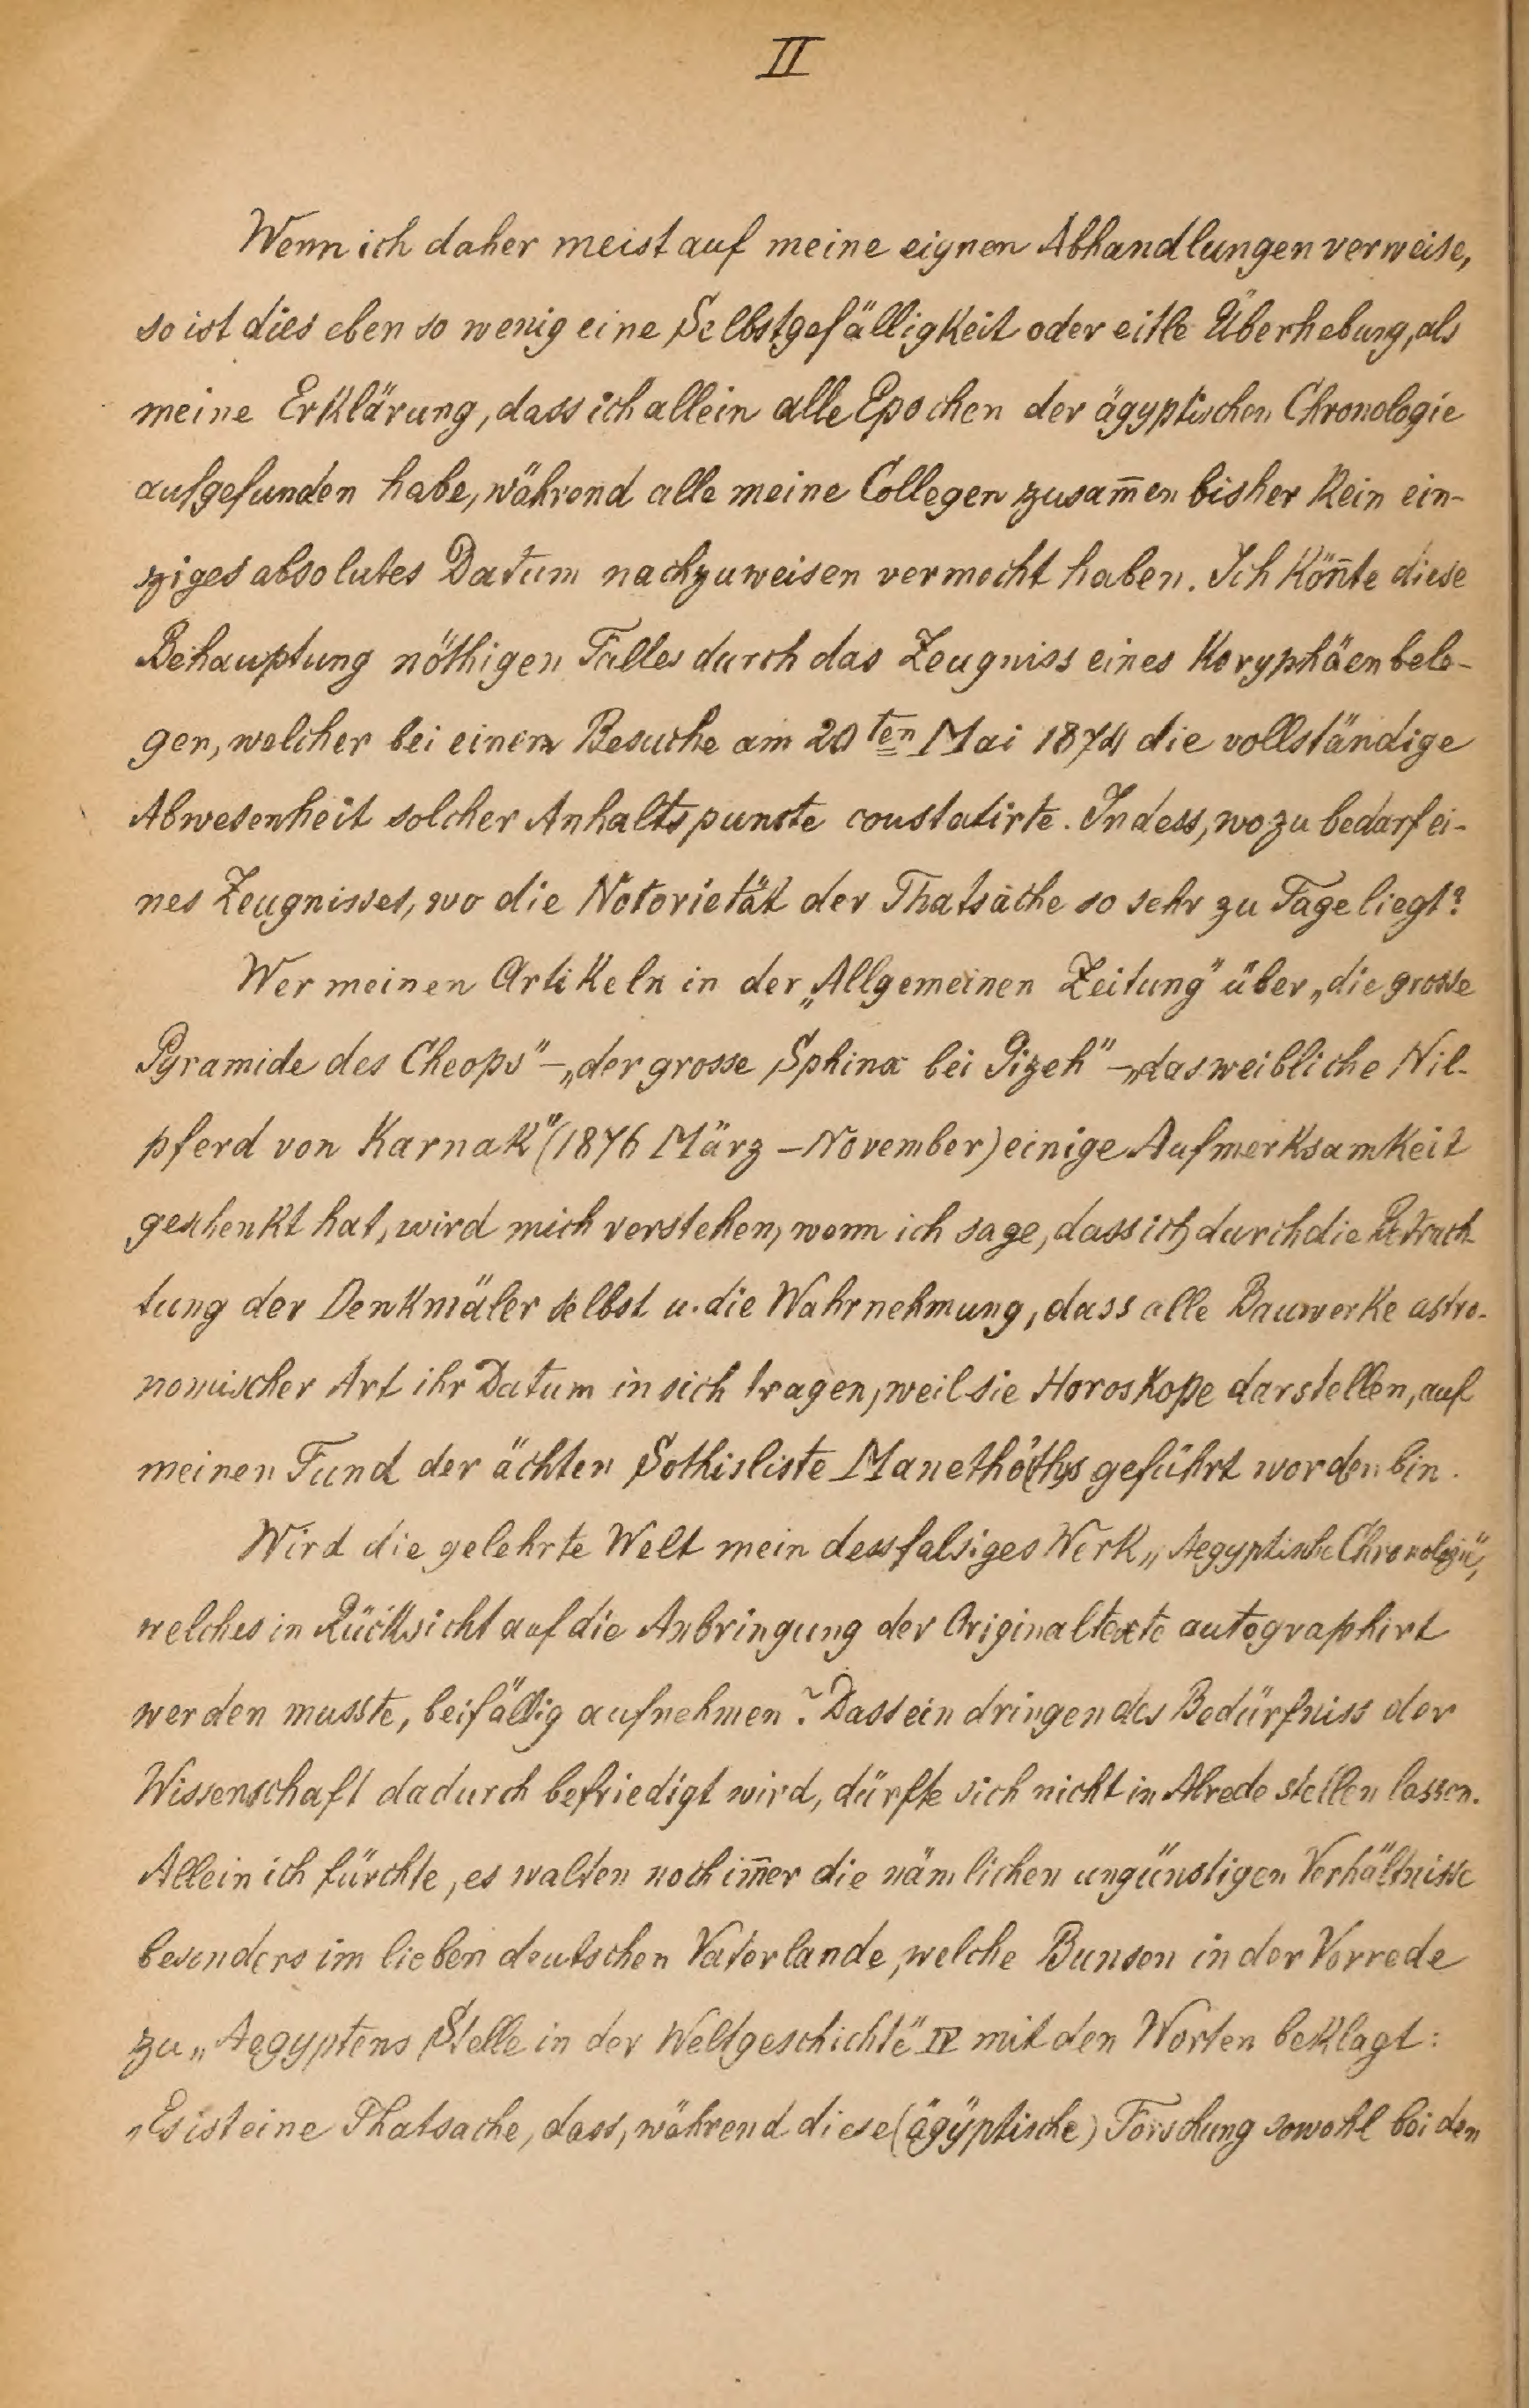 II
Wenn ich daher meist auf meine eignen Abhandlungen verweise,
so ist dies eben so wenig eine Selbstgefälligkeit oder eitle Überhebung, als
meine Erklärung, dass ich allein alle Epochen der ägyptischen Chronologie
aufgefunden habe, während alle meine Collegen zusam̅en bisher kein ein-
ziges absolutes Datum nachzuweisen vermocht haben. Ich kön̅te diese
Behauptung nöthigen Falles durch das Zeugniss eines Koryphäen bele-
gen, welcher bei einem Besuche am 20ten Mai 1874 die vollständige
Abwesenheit solcher Anhaltspuncte constatirte. Indess, wozu bedarf ei-
nes Zeugnisses, wo die Notorietät der Thatsache so sehr zu Tage liegt?
Wer meinen Artikeln in der „Allgemeinen Zeitung" über „die grosse
Pyramide des Cheops" – „der grosse Sphinx bei Gizeh" – „das weibliche Nil-
pferd von Karnak" (1876 März – November) einige Aufmerksamkeit
geschenkt hat, wird mich verstehen, wenn ich sage, dass ich durch die Betrach-
tung der Denkmäler selbst u. die Wahrnehmung, dass alle Bauwerke astro-
nomischer Art ihr Datum in sich tragen, weil sie Horoskope darstellen, auf
meinen Fund der ächten Sothisliste Manethô(th)s geführt worden bin.
Wird die gelehrte Welt mein dessfalsiges Werk „Aegyptische Chronologie",
welches in Rücksicht auf die Anbringung der Originaltexte autographirt
werden musste, beifällig aufnehmen? Dass ein dringendes Bedürfniss der
Wissenschaft dadurch befriedigt wird, dürfte sich nicht in Abrede stellen lassen.
Allein ich fürchte, es walten noch im̅er die nämlichen ungünstigen Verhältnisse
besonders im lieben deutschen Vaterlande, welche Bunsen in der Vorrede
zu „Aegyptens Stelle in der Weltgeschichte" IV mit den Worten beklagt:
„Es ist eine Thatsache, dass, während diese (ägyptische) Forschung sowohl bei den